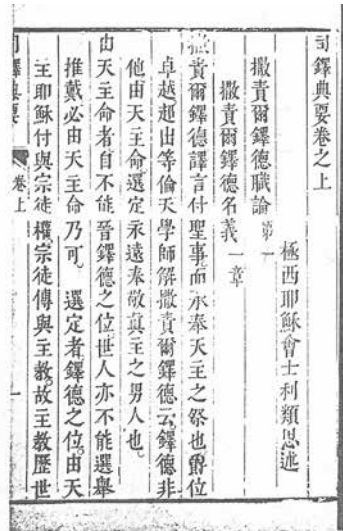 司鐸典要卷之上
極西耶穌會士利類思述
撒責爾鐸德職論第一
撒責爾鐸德名義一章
撒責爾鐸德譯言付聖事而永奉天主之祭也爵位
卓越超出等倫天學師解撒責爾鐸德云鐸德非
他由天主命選定永遠奉敬真主之男人也。
由天主命者自不能晉鐸德之位世人亦不能選舉
推戴必由天主命乃可。選定者鐸德之位由天
主耶穌付與宗徒權宗徒傳與主教故主教歷世
司鐸典要
卷上
一